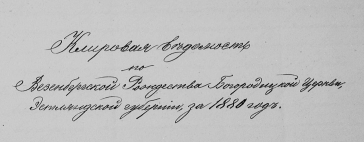 Клировая ведомость
по
Везенбергской Рождества Богородицкой Церкви,
Эстляндской губернии, за 1880 годъ.